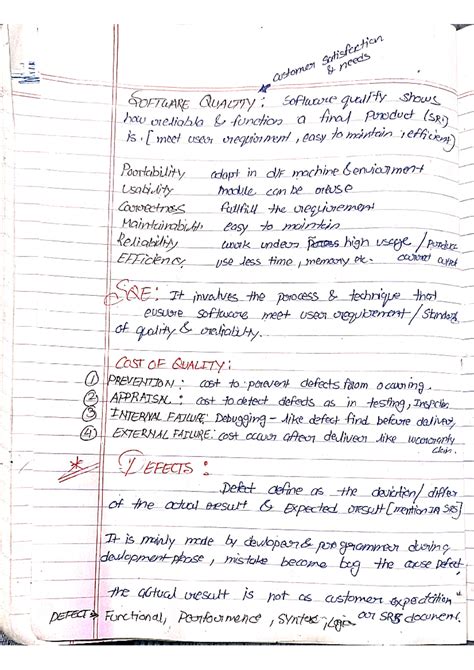 customer satisfaction
& needs
SOFTWARE QUALITY : Software quality shows
how reliable & function a final Product (SRS)
is. [ meet user requirment, easy to maintain , efficient]
Portability adapt in d/f machine & enviorment
Usability module can be reuse
Correctness fullfill the requirement
Maintainability easy to maintain
Reliability work under high usage / Produce
correct
EFFICIENCY use less time , memory etc.
SQE : It involves the process & technique that
ensure software meet user requirement / Standard
of quality & reliability.
COST OF QUALITY :
① PREVENTION : cost to prevent defects from occuring.
② APPRAISAL : cost to detect defects as in testing, Inspection
③ INTERNAL FAILURE Debugging - like defect find before delivery
④ EXTERNAL FAILURE : cost occur after deliver like warranty
claim.
* DEFECTS :
Defect define as the deviation / differ
of the actual result & Expected result [mention in SRS]
It is mainly made by devloper & programmer during
devlopment phase , mistake become bug the cause Defect.
the actual result is not as customer expectation
or SRS document.
DEFECT → Functional, Performence , Syntax , Logic